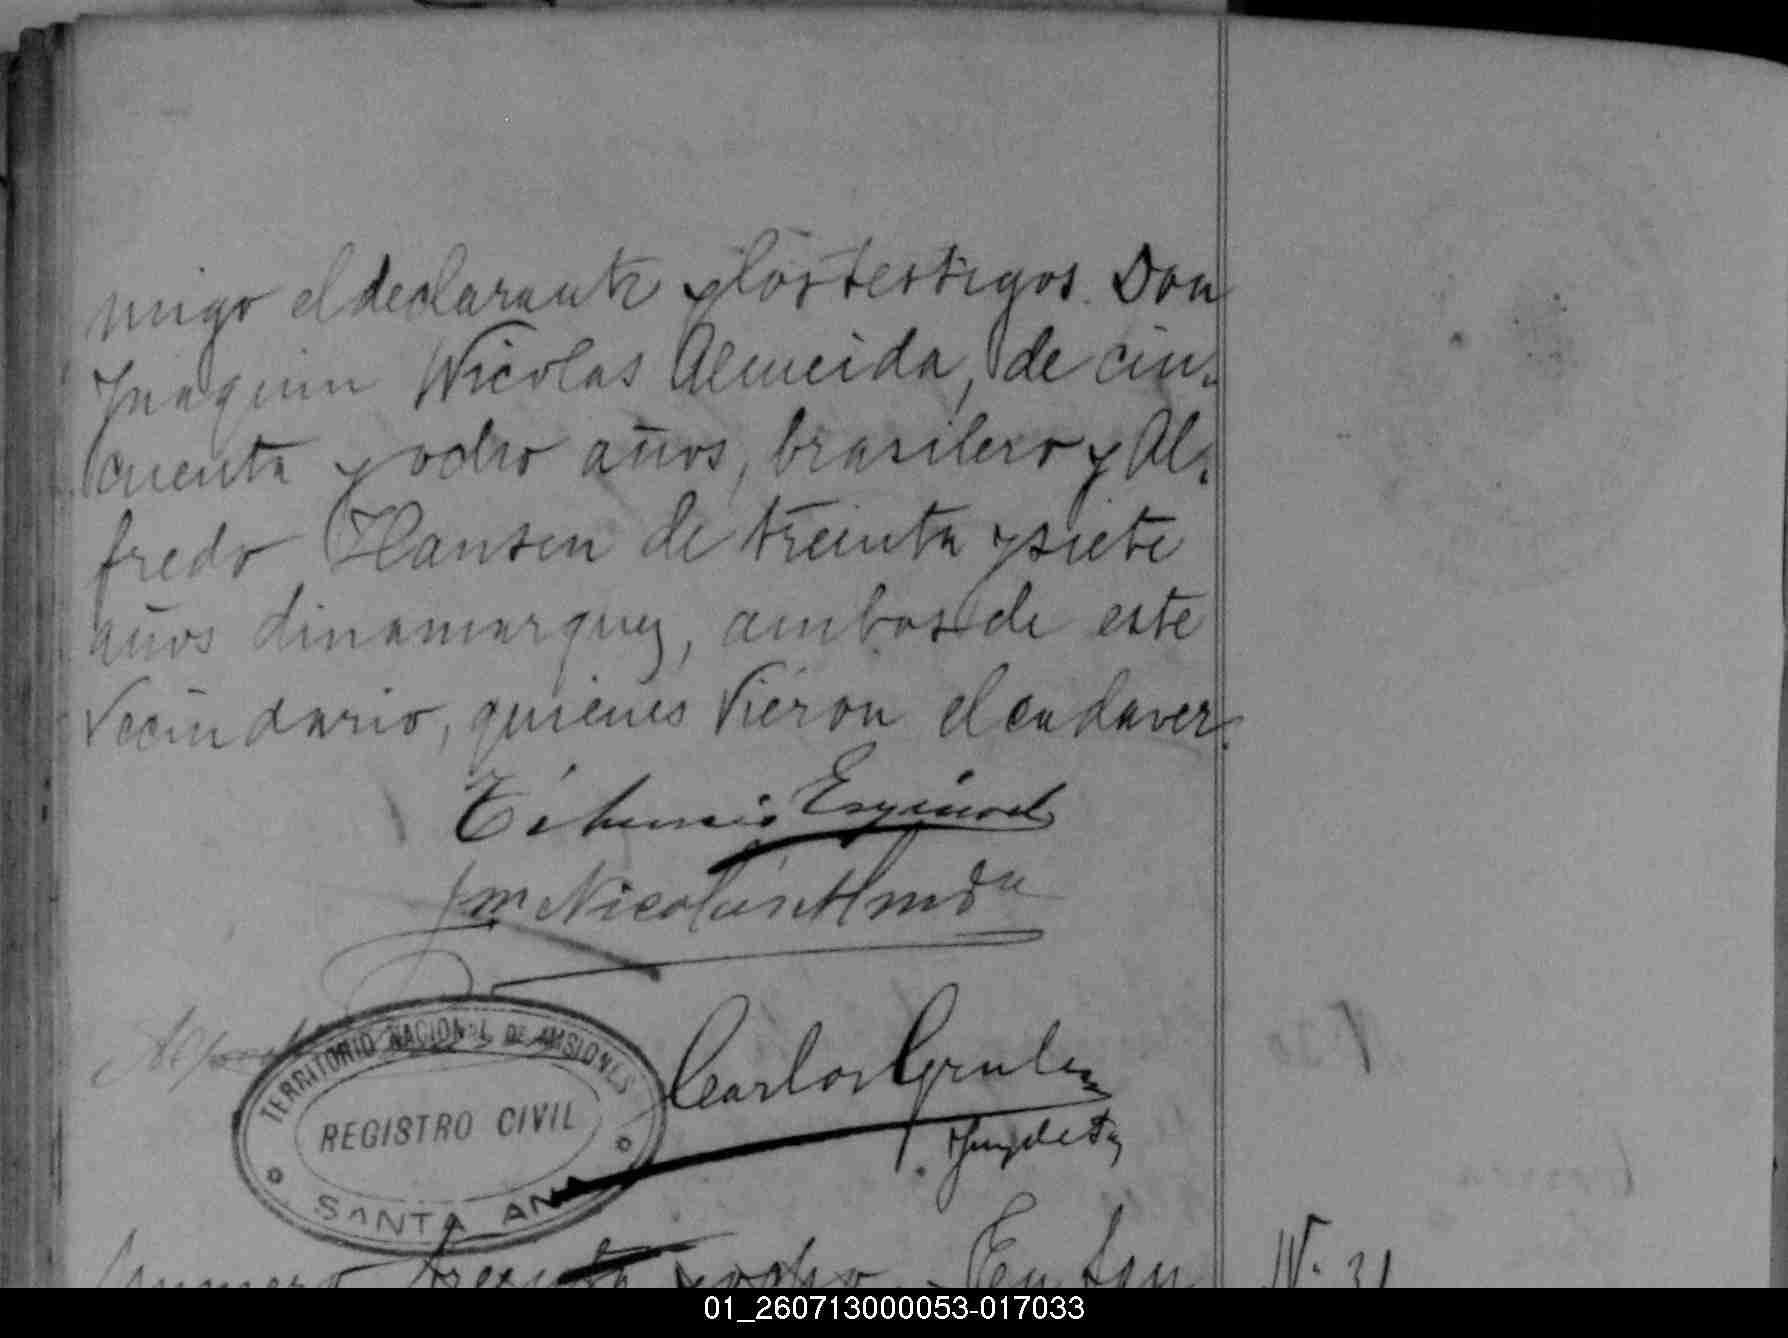 migo el declarante y los testigos Don
Joaquin Nicolas Almeida, de cin-
cuenta y ocho años, brasilero y Al-
fredo Hansen de treinta y siete
años dinamarquez, ambos de este
vecindario, quienes vieron el cadaver.
Jm Nicolás Almda
TERRITORIO NACIONAL DE MISIONES
REGISTRO CIVIL
SANTA ANA
Carlos
Juez de Paz
Numero treinta y ocho. En San
N. 31
01_260713000053-017033